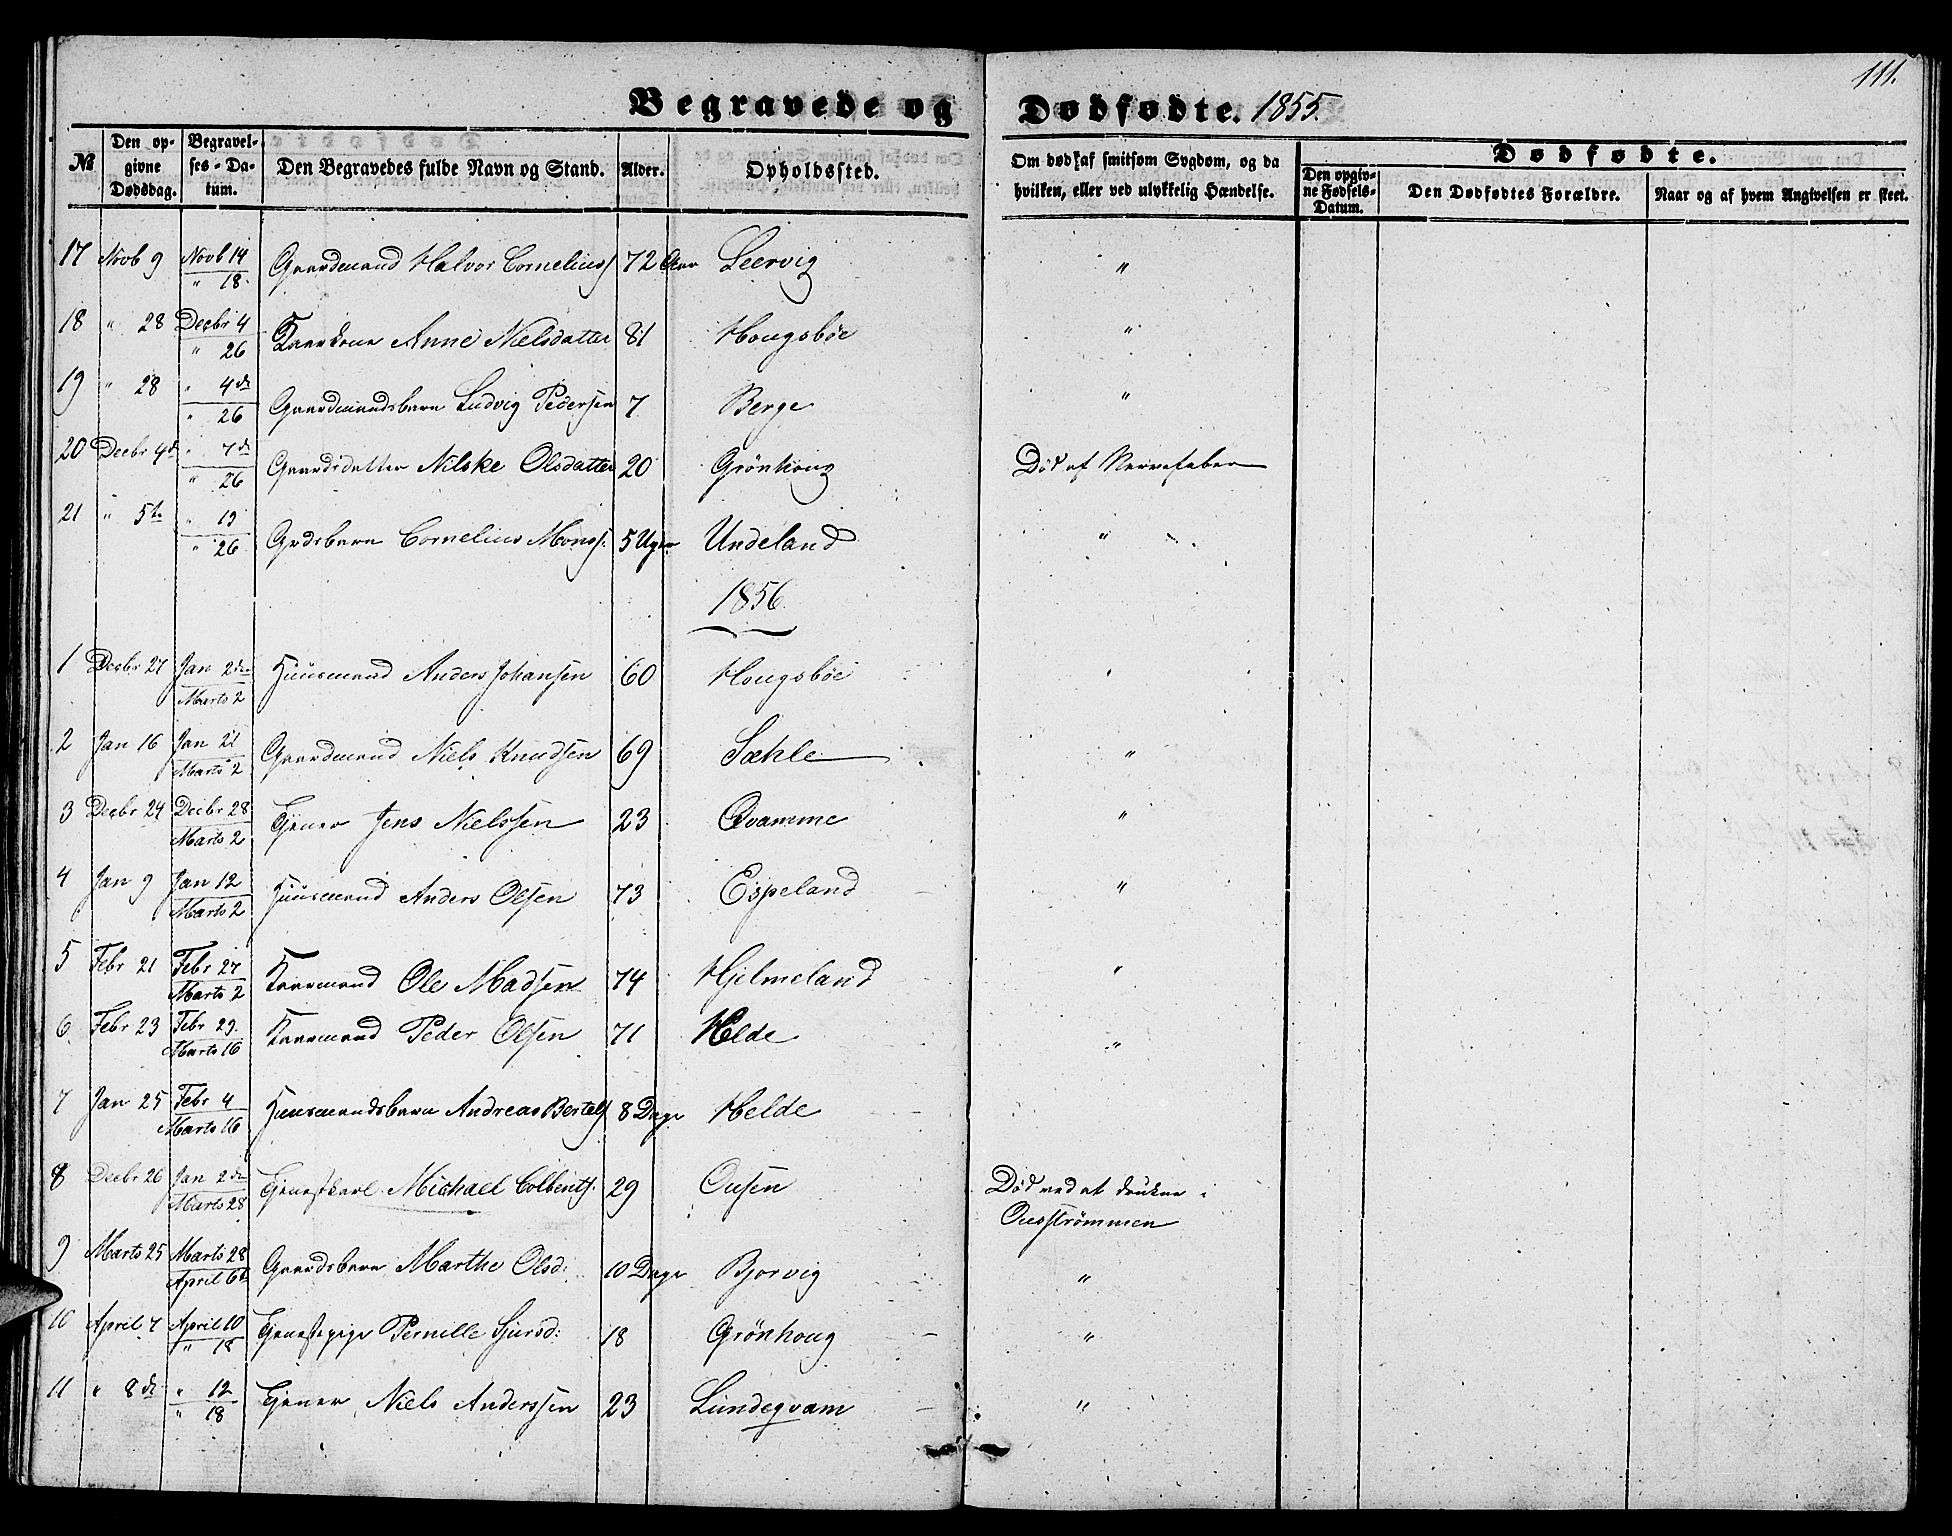 111.
Begravede og Dødfødte. 1855.
№ Den opgivne Dødsdag. Begravelses-Datum. Den Begravedes fulde Navn og Stand. Alder. Opholdssted. Om død af smitsom Sygdom, og da hvilken, eller ved ulykkelig Hændelse. Dødfødte. Den opgivne Fødsels-Datum. Den Dødfødtes Forældre. Naar og af hvem Angivelsen er skeet.
17 Novb 9 Novb 14 " 18 Gaardmand Halvor Corneliuss 72 Aar Leervig "
18 " 28 Decbr 4 " 26 Kaarkone Anne Nielsdatter 81 Hougsbøe "
19 " 28 " 4de " 26 Gaardmandsbarn Ludvig Pedersen 7 Berge "
20 Decbr 4d " 7de " 26 Gaardsdatter Nilske Olsdatter 20 Grönhoug Död af Nervefeber
21 " 5te " 19 " 26 Grdsbarn Cornelius Monss. 5 Uger Undeland "
1856.
1 Decbr 27 Jan 2den Marts 2 Huusmand Anders Johansen 60 Hougsbøe "
2 Jan 16 Jan 21 Marts 2 Gaardmand Niels Knudsen 69 Sæhle "
3 Decbr 24 Decbr 28 Marts 2 Tjener Jens Nielssen 23 Qvamme "
4 Jan 9 Jan 12 Marts 2 Huusmand Anders Olsen 73 Espeland "
5 Febr 21 Febr 27 Marts 2 Kaarmand Ole Madsen 74 Hjelmeland "
6 Febr 23 Febr 29. Marts 16 Kaarmand Peder Olsen 71 Helde "
7 Jan 25 Febr 4 Marts 16 Huusmandsbarn Andreas Bertels 8 Dage Helde
8 Decbr 26 Jan 2de Marts 28 Tjenestkarl Michael Colbents. 29 Ousen Död ved at drukne i
Ousströmmen
9 Marts 25 Marts 28 April 6te Gaardsbarn Marthe Olsd: 10 Dage Bjorvig "
10 April 7 April 10 " 18 Tjenestepige Pernille Sjursd: 18 Grönhoug "
11 " 8de " 12 " 18 Tjener Niels Anderssen 23 Lundeqvam "